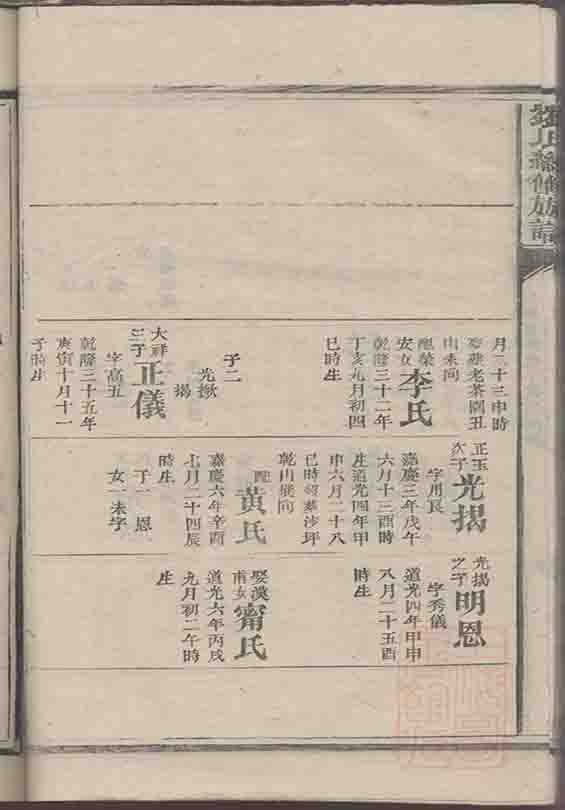 月二十三申時
葬雞老茶園丑
山未向
李氏
乾隆三十二年
丁亥九月初四
巳時生
子二
光揪
揭
大祥
三子
正儀
字高五
乾隆三十五年
庚寅十月十一
子時生
正玉
次子
光揭
字用良
嘉慶三年戊午
六月十三酉時
生道光四年甲
申六月二十八
巳時葬沙坪
乾山巽向
配
黃氏
嘉慶六年辛酉
七月二十四辰
時生
子一 恩
女一未字
光揭
之子
明恩
字秀儀
道光四年甲申
八月二十五酉
時生
娶漢
南女
甯氏
道光六年丙戌
九月初二午時
生